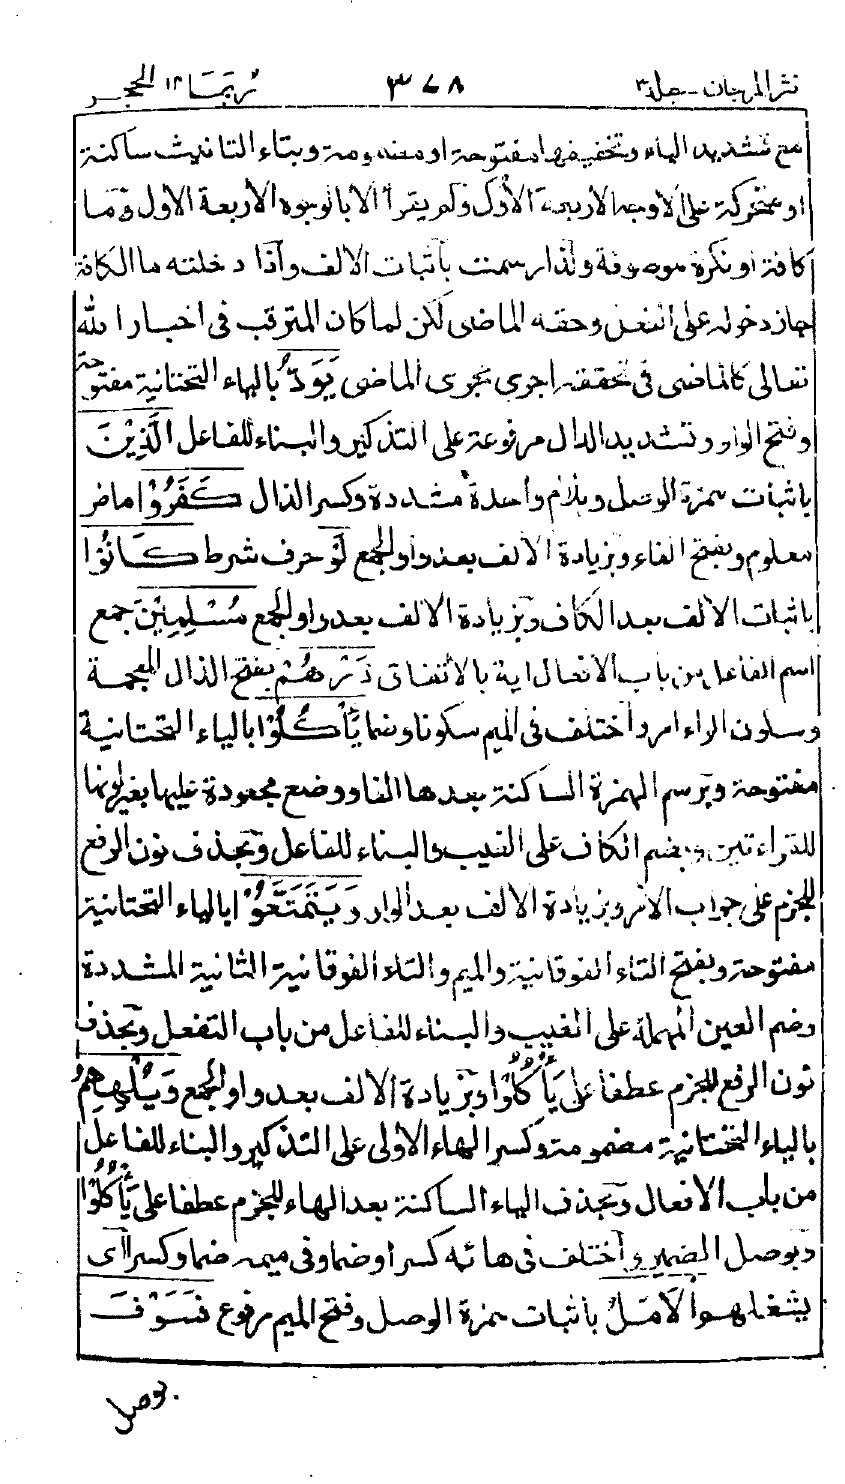 نثر المرجان - جلد ٣ ٣٧٨ ربما ١٤ الحجر
مع تشديد الباء وتخفيفها مفتوحة او مضمومة وبتاء التانيث ساكنة
او محركة على الاوجه الاربعة الأول ولم يقرأ الا بالوجوه الاربعة الاول ومَا
كافة او نكرة موصوفة ولذا رسمت بأثبات الالف وأذا دخلته ما الكافة
جاز دخوله على الفعل وحقه الماضى لكن لما كان المترقب فى اخبار الله
تعالى كالماضى فى تحققه اجرى مجرى الماضى يَوَدُّ بالياء التحتانية مفتوحة
وفتح الواو وتشديد الدال مرفوعة على التذكير والبناء للفاعل الَّذِيْنَ
باثبات همزة الوصل وبلام واحدة مشددة وكسر الذال كَفَرُوْا ماض
معلوم وبفتح الفاء وبزيادة الالف بعد واو الجمع لَوْ حرف شرط كَانُوْا
باثبات الالف بعد الكاف وبزيادة الالف بعد واو الجمع مُسْلِمِيْنَ جمع
اسم الفاعل من باب الافعال اية بالاتفاق ذَرْهُمْ بفتح الذال المعجمة
وسكون الراء امر وأختلف فى الميم سكونا وضما يَأْكُلُوْا بالياء التحتانية
مفتوحة وبرسم الهمزة الساكنة بعدها الفا ووضع مجعودة عليها بغير لونها
للقراءتين وبضم الكاف على الغيب والبناء للفاعل وبحذف نون الرفع
للجزم على جواب الامر وبزيادة الالف بعد الواو وَيَتَمَتَّعُوْا بالياء التحتانية
مفتوحة وبفتح التاء الفوقانية والميم والتاء الفوقانية الثانية المشددة
وضم العين المهملة على الغيب والبناء للفاعل من باب التفعل وبحذف
نون الرفع للجزم عطفا على يَأْكُلُوْا وبزيادة الالف بعد واو الجمع وَيُلْهِهِمُ
بالياء التحتانية مضمومة وكسر الهاء الأولى على التذكير والبناء للفاعل
من باب الافعال وبحذف الياء الساكنة بعد الهاء للجزم عطفا على يَأْكُلُوْا
وبوصل الضمير وأختلف فى هائه كسرا وضما وفى ميمه ضما وكسرا أى
يشغلهم الْاَمَلُ باثبات همزة الوصل وفتح الميم مرفوع فَسَوْفَ
بوصل